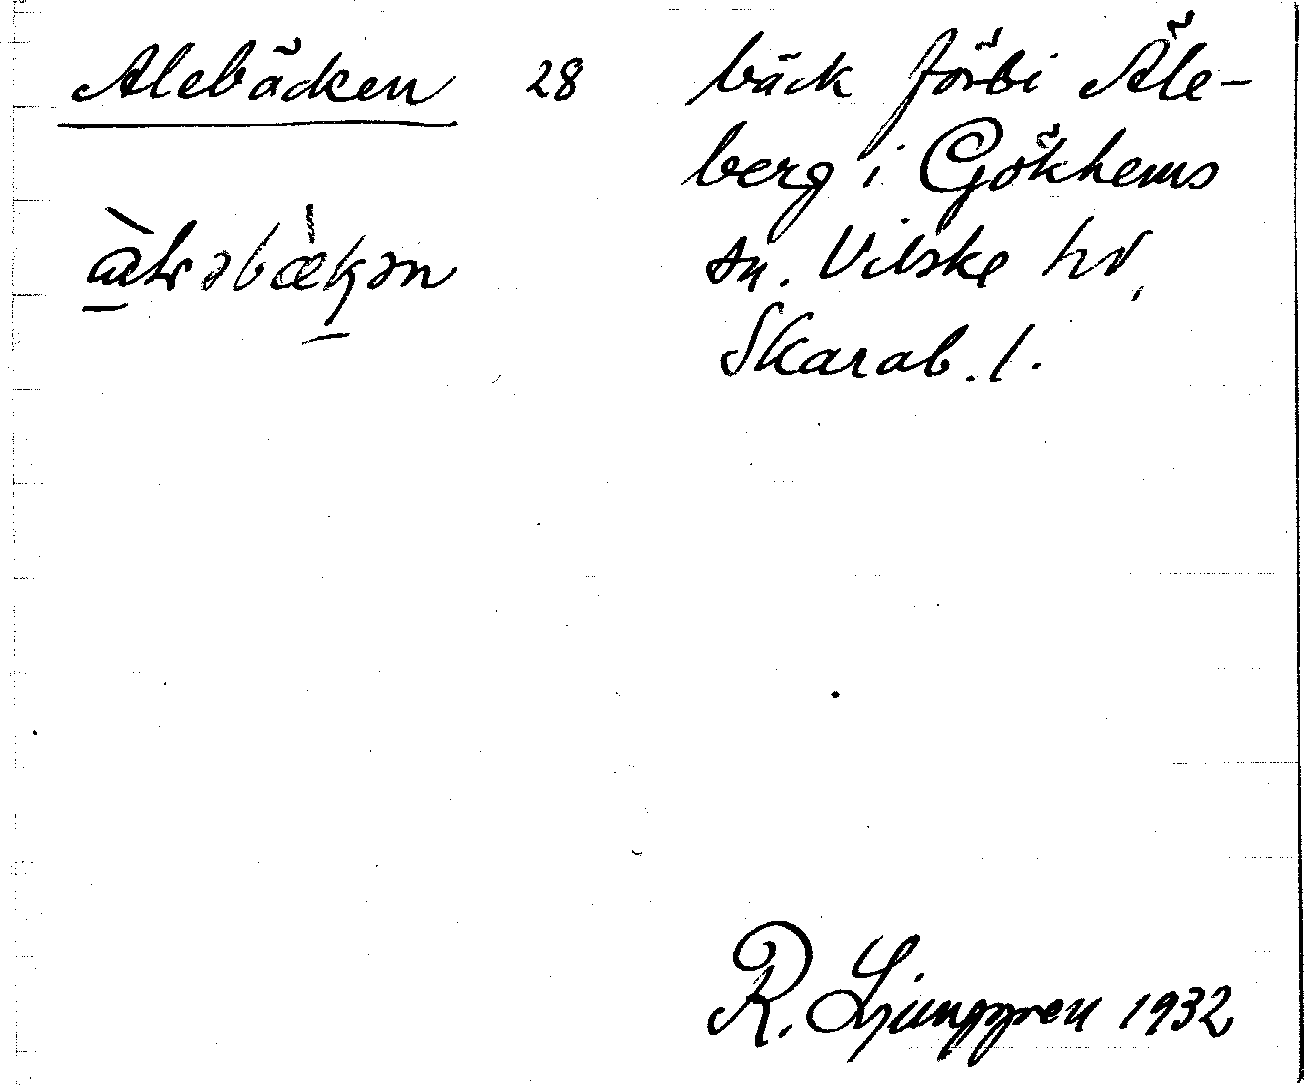 Alebäcken 28 bäck förbi Åle-
berg i Gökhems
sn. Vilske hd,
Skarab. l.
R. Ljunggren 1932